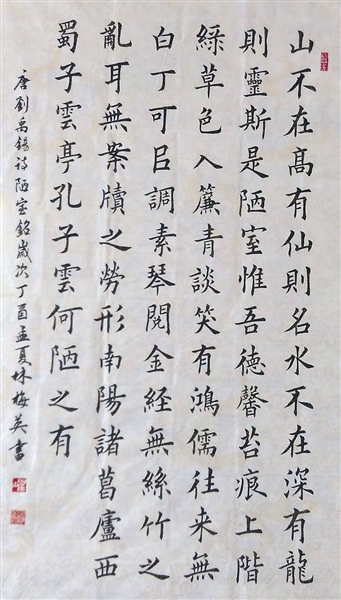 山不在髙有仙則名水不在深有龍
則靈斯是陋室惟吾德馨苔痕上階
綠草色入簾青談笑有鴻儒往来無
白丁可㠯調素琴閲金経無絲竹之
亂耳無案牘之勞形南陽諸葛廬西
蜀子雲亭孔子雲何陋之有
唐劉禹錫詩陋室銘歲次丁酉孟夏林梅英書